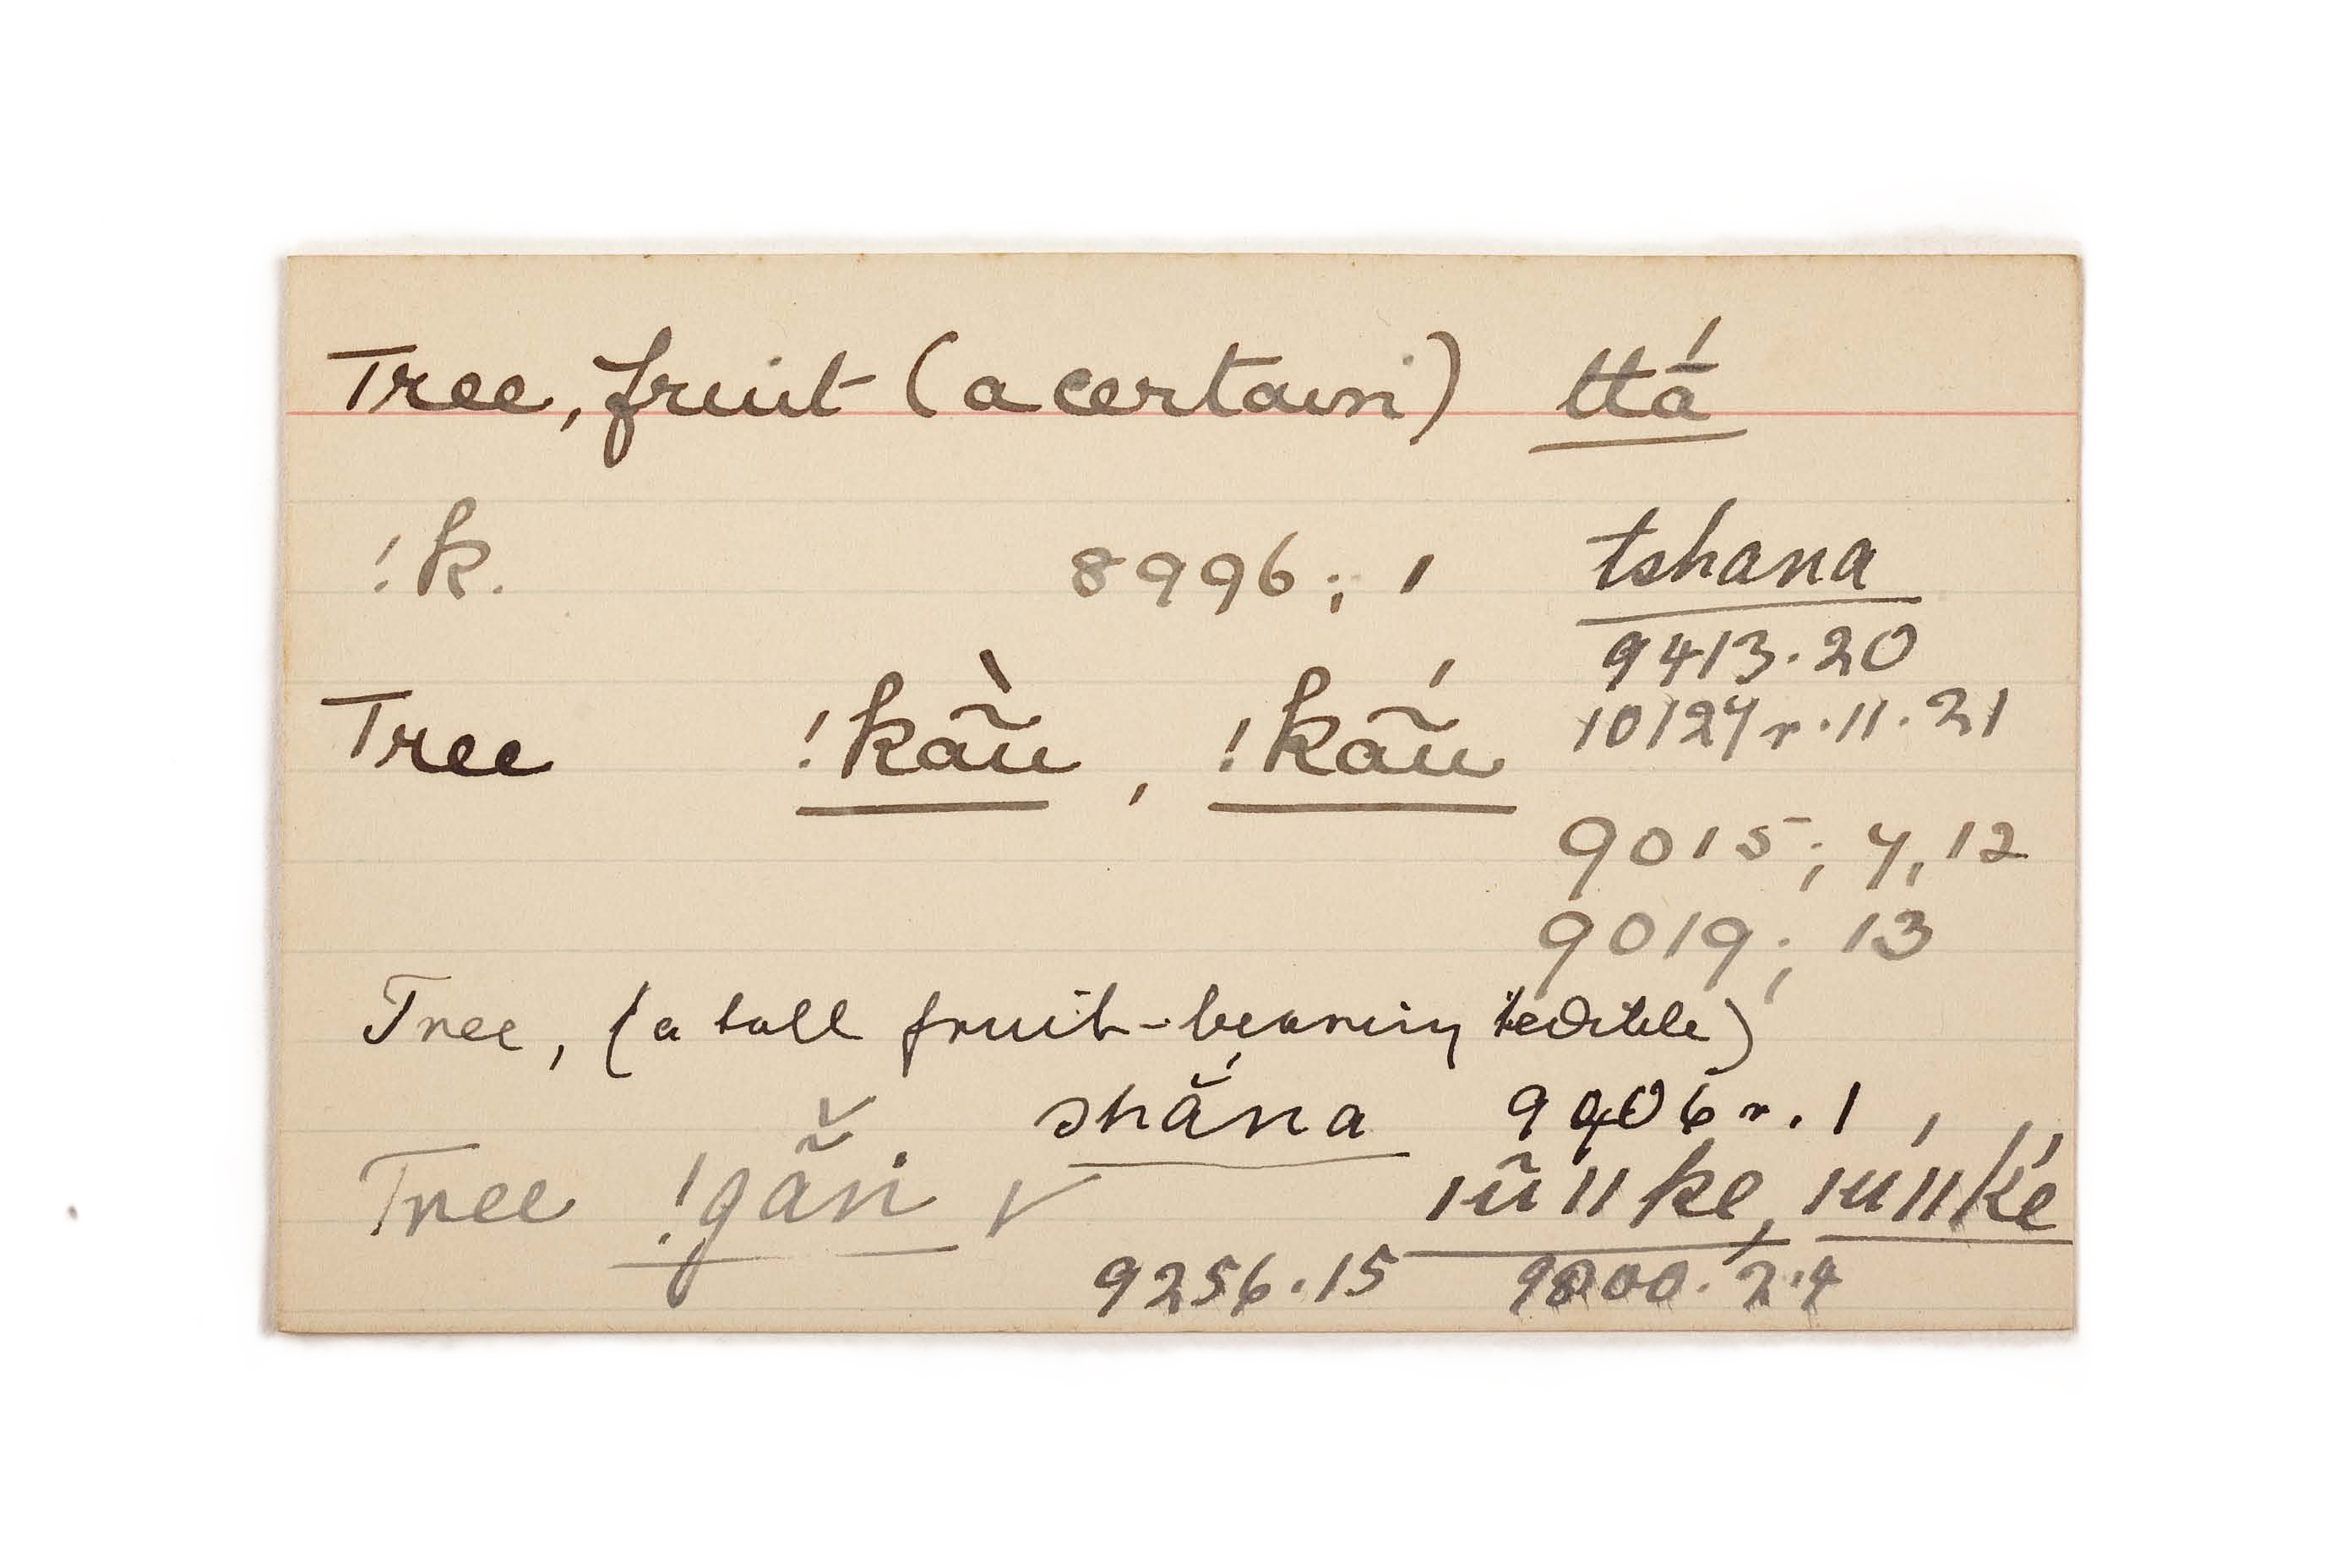 Tree, fruit (a certain) ttā́
!k. 8996; 1 tshana
9413.20
Tree !kã̀u, !kã́u 10127r.11.21
9015; 7, 12
9019; 13
Tree, (a tall fruit-bearing edible)
shăna 9406r.1
Tree !gãn̆i ✓ ıũııke, ıúııḱé
9256.15 9800.2.4